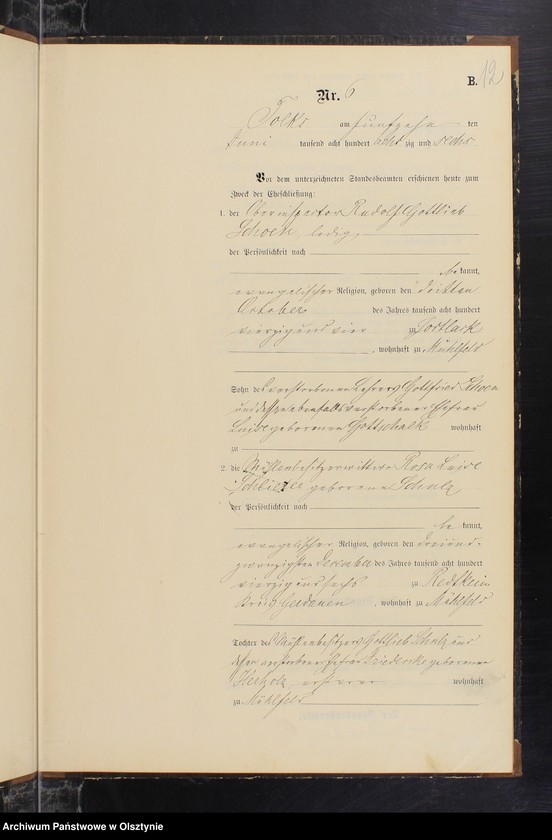 B. 12
Nr. 6
Tolks am fünfzehn ten
Juni tausend acht hundert achtzig und sechs
Vor dem unterzeichneten Standesbeamten erschienen heute zum
Zweck der Eheschließung:
1. der Oberinspector Rudolf Gottlieb
Schoen, ledig,
der Persönlichkeit nach
bekannt,
evangelischer Religion, geboren den dritten
October des Jahres tausend acht hundert
vierzig und vier zu Tortlack
, wohnhaft zu Mühlfeld
Sohn des verstorbenen Lehrers Gottfried Schoen
und dessen ebenfalls verstorbener Ehefrau
Luise geborenen Gottschalk wohnhaft
zu
2. die Mühlenbesitzerwittwe Rosa Luise
geborene Schulz
der Persönlichkeit nach
bekannt,
evangelischer Religion, geboren den dreiund-
zwanzigsten December des Jahres tausend acht hundert
vierzig und sechs zu Redtkeim
Kreis Gerdauen, wohnhaft zu Mühlfeld
Tochter des Mühlenbesitzers Gottlieb Schulz und
dessen verstorbener Ehefrau Friederike geborenen
wohnhaft
zu Mühlfeld
Archiwum Państwowe w Olsztynie